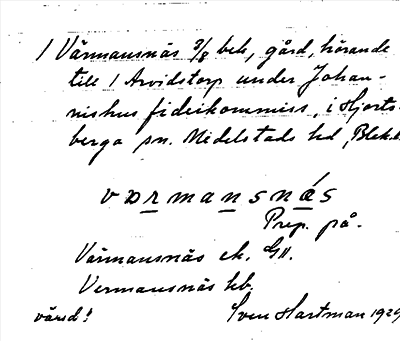 1 Värmansnäs 3/8 beb, gård, hörande
till 1 Arvidstorp under Johan-
nishus fideikommiss, i Hjorts-
berga sn. Medelstads hd, Blek.l.
värmansnäs
Prep. på.
Värmansnäs ek. GII.
Vermansnäs hb.
värd!
Sven Hartman 1929